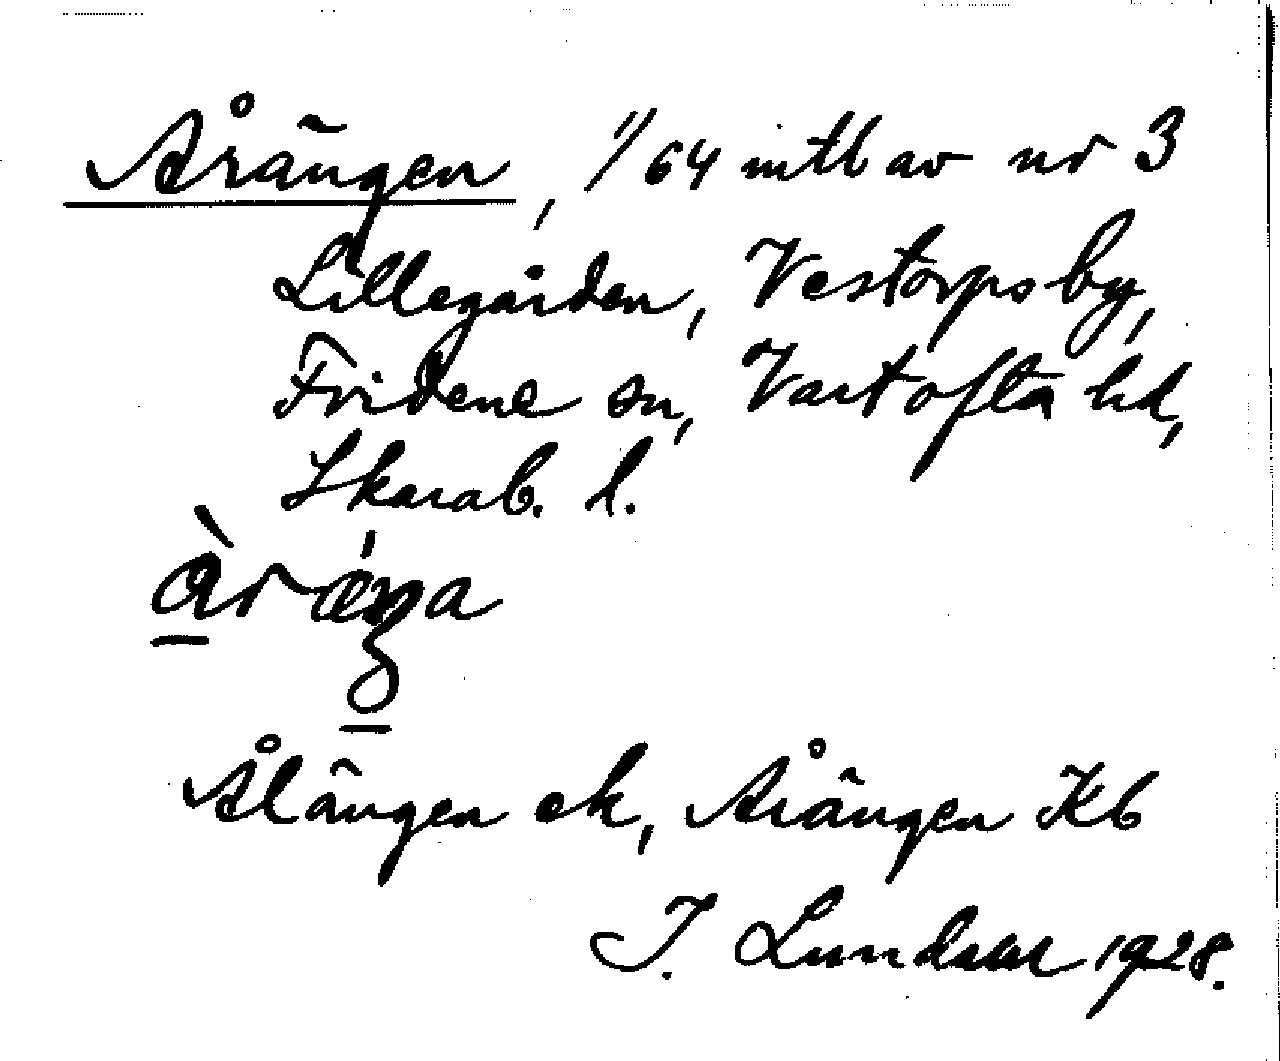 Årängen, 1/64 mtl av nr 3
Lillegården, Vestorps by,
Fridene sn, Vartofta hd,
Skarab. l.
Ålängen ek, Årängen Kb
J. Lundahl 1928.